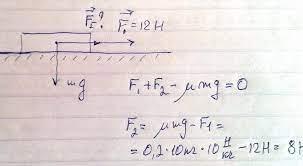 F⃗₂? F⃗₁=12Н
mg
F₁+F₂-μmg=0
F₂= μmg-F₁=
=0,2·10кг·10 Н/кг -12Н= 8Н